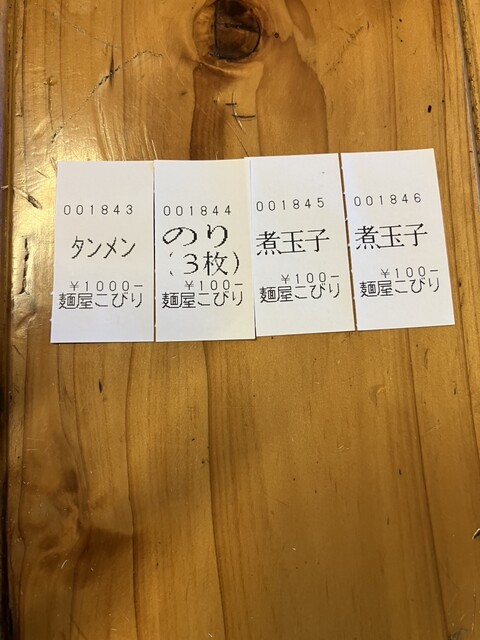 001843
タンメン
¥1000-
麺屋こびり
001844
のり
(3枚)
¥100-
麺屋こびり
001845
煮玉子
¥100-
麺屋こびり
001846
煮玉子
¥100-
麺屋こびり